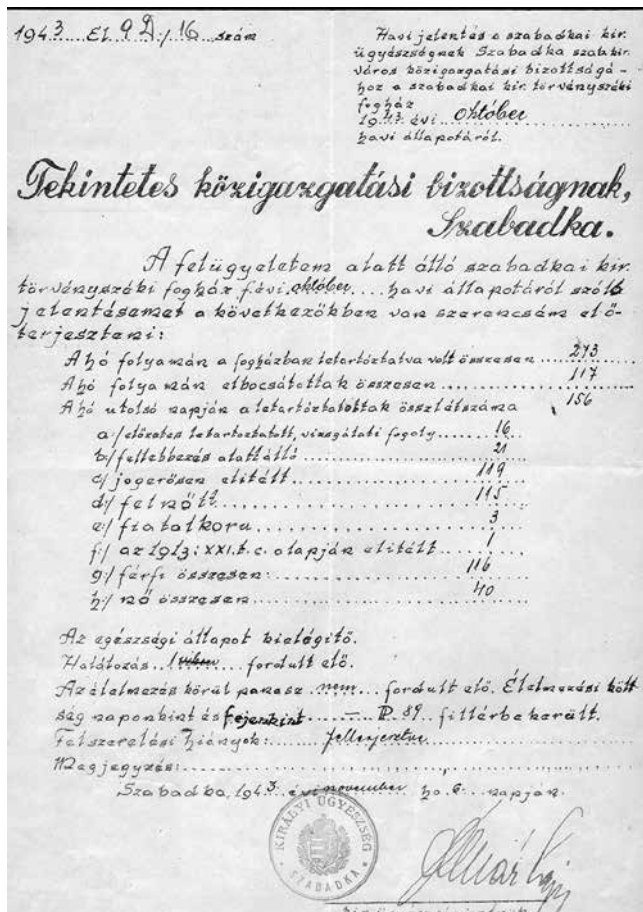 1943 El. 9 D/16 szám
Havi jelentés a szabadkai kir.
ügyészségnek Szabadka szab. kir.
város közigazgatási bizottságá-
hoz a szabadkai kir. törvényszéki
fogház
1943. évi október
havi állapotáról.
Tekintetes közigazgatási bizottságnak,
Szabadka.
A felügyeletem alatt álló szabadkai kir.
törvényszéki fogház f. évi október havi állapotáról szóló
jelentésemet a következőkben van szerencsém elő-
terjeszteni:
A hó folyamán a fogházban letartóztatva volt összesen 273
A hó folyamán elbocsátottak összesen 117
A hó utolsó napján a letartóztatottak összlétszáma 156
a:/ előzetes letartoztatott, vizsgálati fogoly 16
b:/ fellebbezés alatt álló 21
c:/ jogerősen elitélt 119
d:/ felnőtt 115
e:/ fiatalkoru 3
f:/ az 1913: XXI. t. c. alapján elitélt 1
g:/ férfi összesen: 116
h:/ nő összesen 40
Az egészségi állapot kielégitő.
Halálozás 1 fordult elő.
Az élelmezés körül panasz nem fordult elő. Élelmezési költ
ség naponkint és fejenkint — P. 89 fillérbe került.
Felszerelési hiányok:
Megjegyzés:
Szabadka, 1943 évi november hó 6 napján.
KIRÁLYI ÜGYÉSZSÉG
SZABADKA